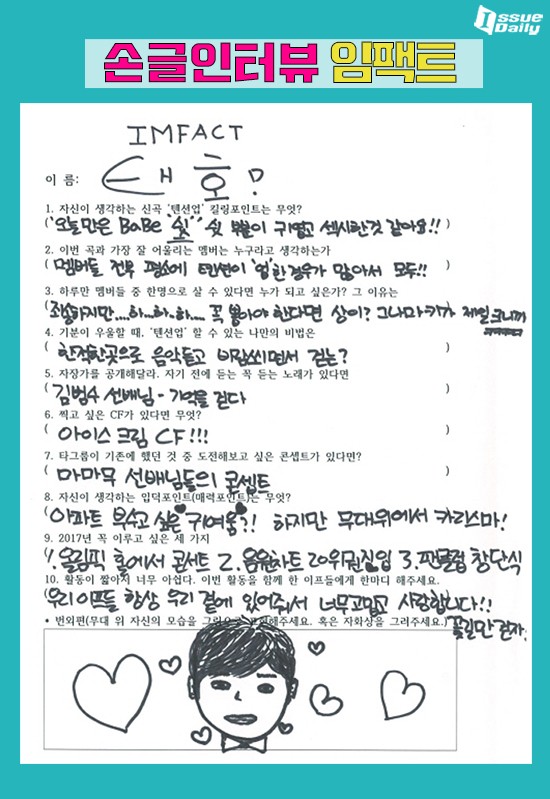 Issue
Daily
손글인터뷰 임팩트
IMFACT
이 름: 태호!
1. 자신이 생각하는 신곡 '텐션업' 킬링포인트는 무엇?
('오늘만은 BaBe 쉿' 쉿 부분이 귀엽고 섹시한것 같아요!!)
2. 이번 곡과 가장 잘 어울리는 멤버는 누구라고 생각하는가
(멤버들 전부 평소에 텐션이 '업'한경우가 많아서 모두!!)
3. 하루만 멤버들 중 한명으로 살 수 있다면 누가 되고 싶은가? 그 이유는
(죄송하지만...하...하...하... 꼭 뽑아야 한다면 상이? 그나마 키가 제일 크니까)
4. 기분이 우울할 때, '텐션업' 할 수 있는 나만의 비법은
(한적한곳으로 음악듣고 바람쐬면서 걷는?)
5. 자장가를 공개해달라. 자기 전에 듣는 꼭 듣는 노래가 있다면
(김범수 선배님 - 기억을 걷다)
6. 찍고 싶은 CF가 있다면 무엇?
(아이스크림 CF!!!)
7. 타그룹이 기존에 했던 것 중 도전해보고 싶은 콘셉트가 있다면?
(마마무 선배님들의 콘셉트)
8. 자신이 생각하는 입덕포인트(매력포인트)는 무엇?
(아파트 부수고 싶은 귀여움?! 하지만 무대위에서 카리스마!)
9. 2017년 꼭 이루고 싶은 세 가지
(1. 올림픽 홀에서 콘서트 2. 음원차트 20위권진입 3. 팬클럽 창단식
10. 활동이 짧아서 너무 아쉽다. 이번 활동을 함께 한 이프들에게 한마디 해주세요.
(우리 이프들 항상 우리 곁에 있어줘서 너무고맙고 사랑합니다!!
꽃길만 걷자.
• 번외편(무대 위 자신의 모습을 그림으로 표현해주세요. 혹은 자화상을 그려주세요.)